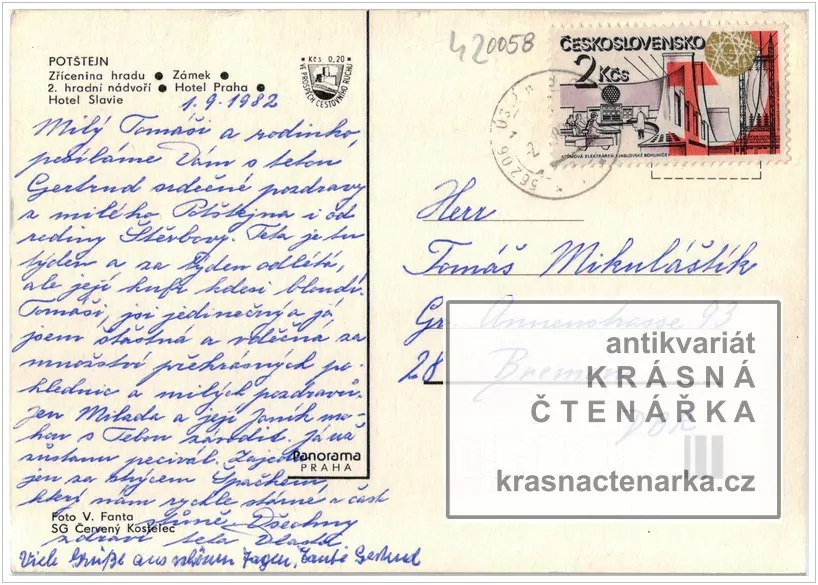 POTŠTEJN
Zřícenina hradu ● Zámek ●
2. hradní nádvoří ● Hotel Praha ●
Hotel Slavie
Kčs 0,20
VE PROSPĚCH CESTOVNÍHO RUCHU
420058
ČESKOSLOVENSKO
2 Kčs
ATOMOVÁ ELEKTRÁREŇ JASLOVSKÉ BOHUNICE
56206
1.9.1982
Milý Tomáši a rodinko,
posíláme Vám s tetou
Gertrud srdečné pozdravy
z milého Potštejna i od
rodiny Štěrbovy. Teta je tu
týden a za týden odlétá,
ale její kufr kdesi bloudí.
Tomáši, jsi jedinečný a já
jsem šťastná a vděčná za
množství překrásných po-
hlednic a milých pozdravů.
Jen Milada a její Janík mo-
hou s Tebou závodit. Já už
zůstanu pecivál.
jen za strýcem Špačkem,
který nám rychle stůně a část
stůně. Všechny
zdraví teta Vlasta
Viele Grüße aus schönen Tagen, Tante Gertrud
Herr
Tomáš Mikuláštík
Gr. Annenstrasse 93
28 Bremen
Panorama
PRAHA
Foto V. Fanta
SG Červený Kostelec
antikvariát
KRÁSNÁ
ČTENÁŘKA
krasnactenarka.cz